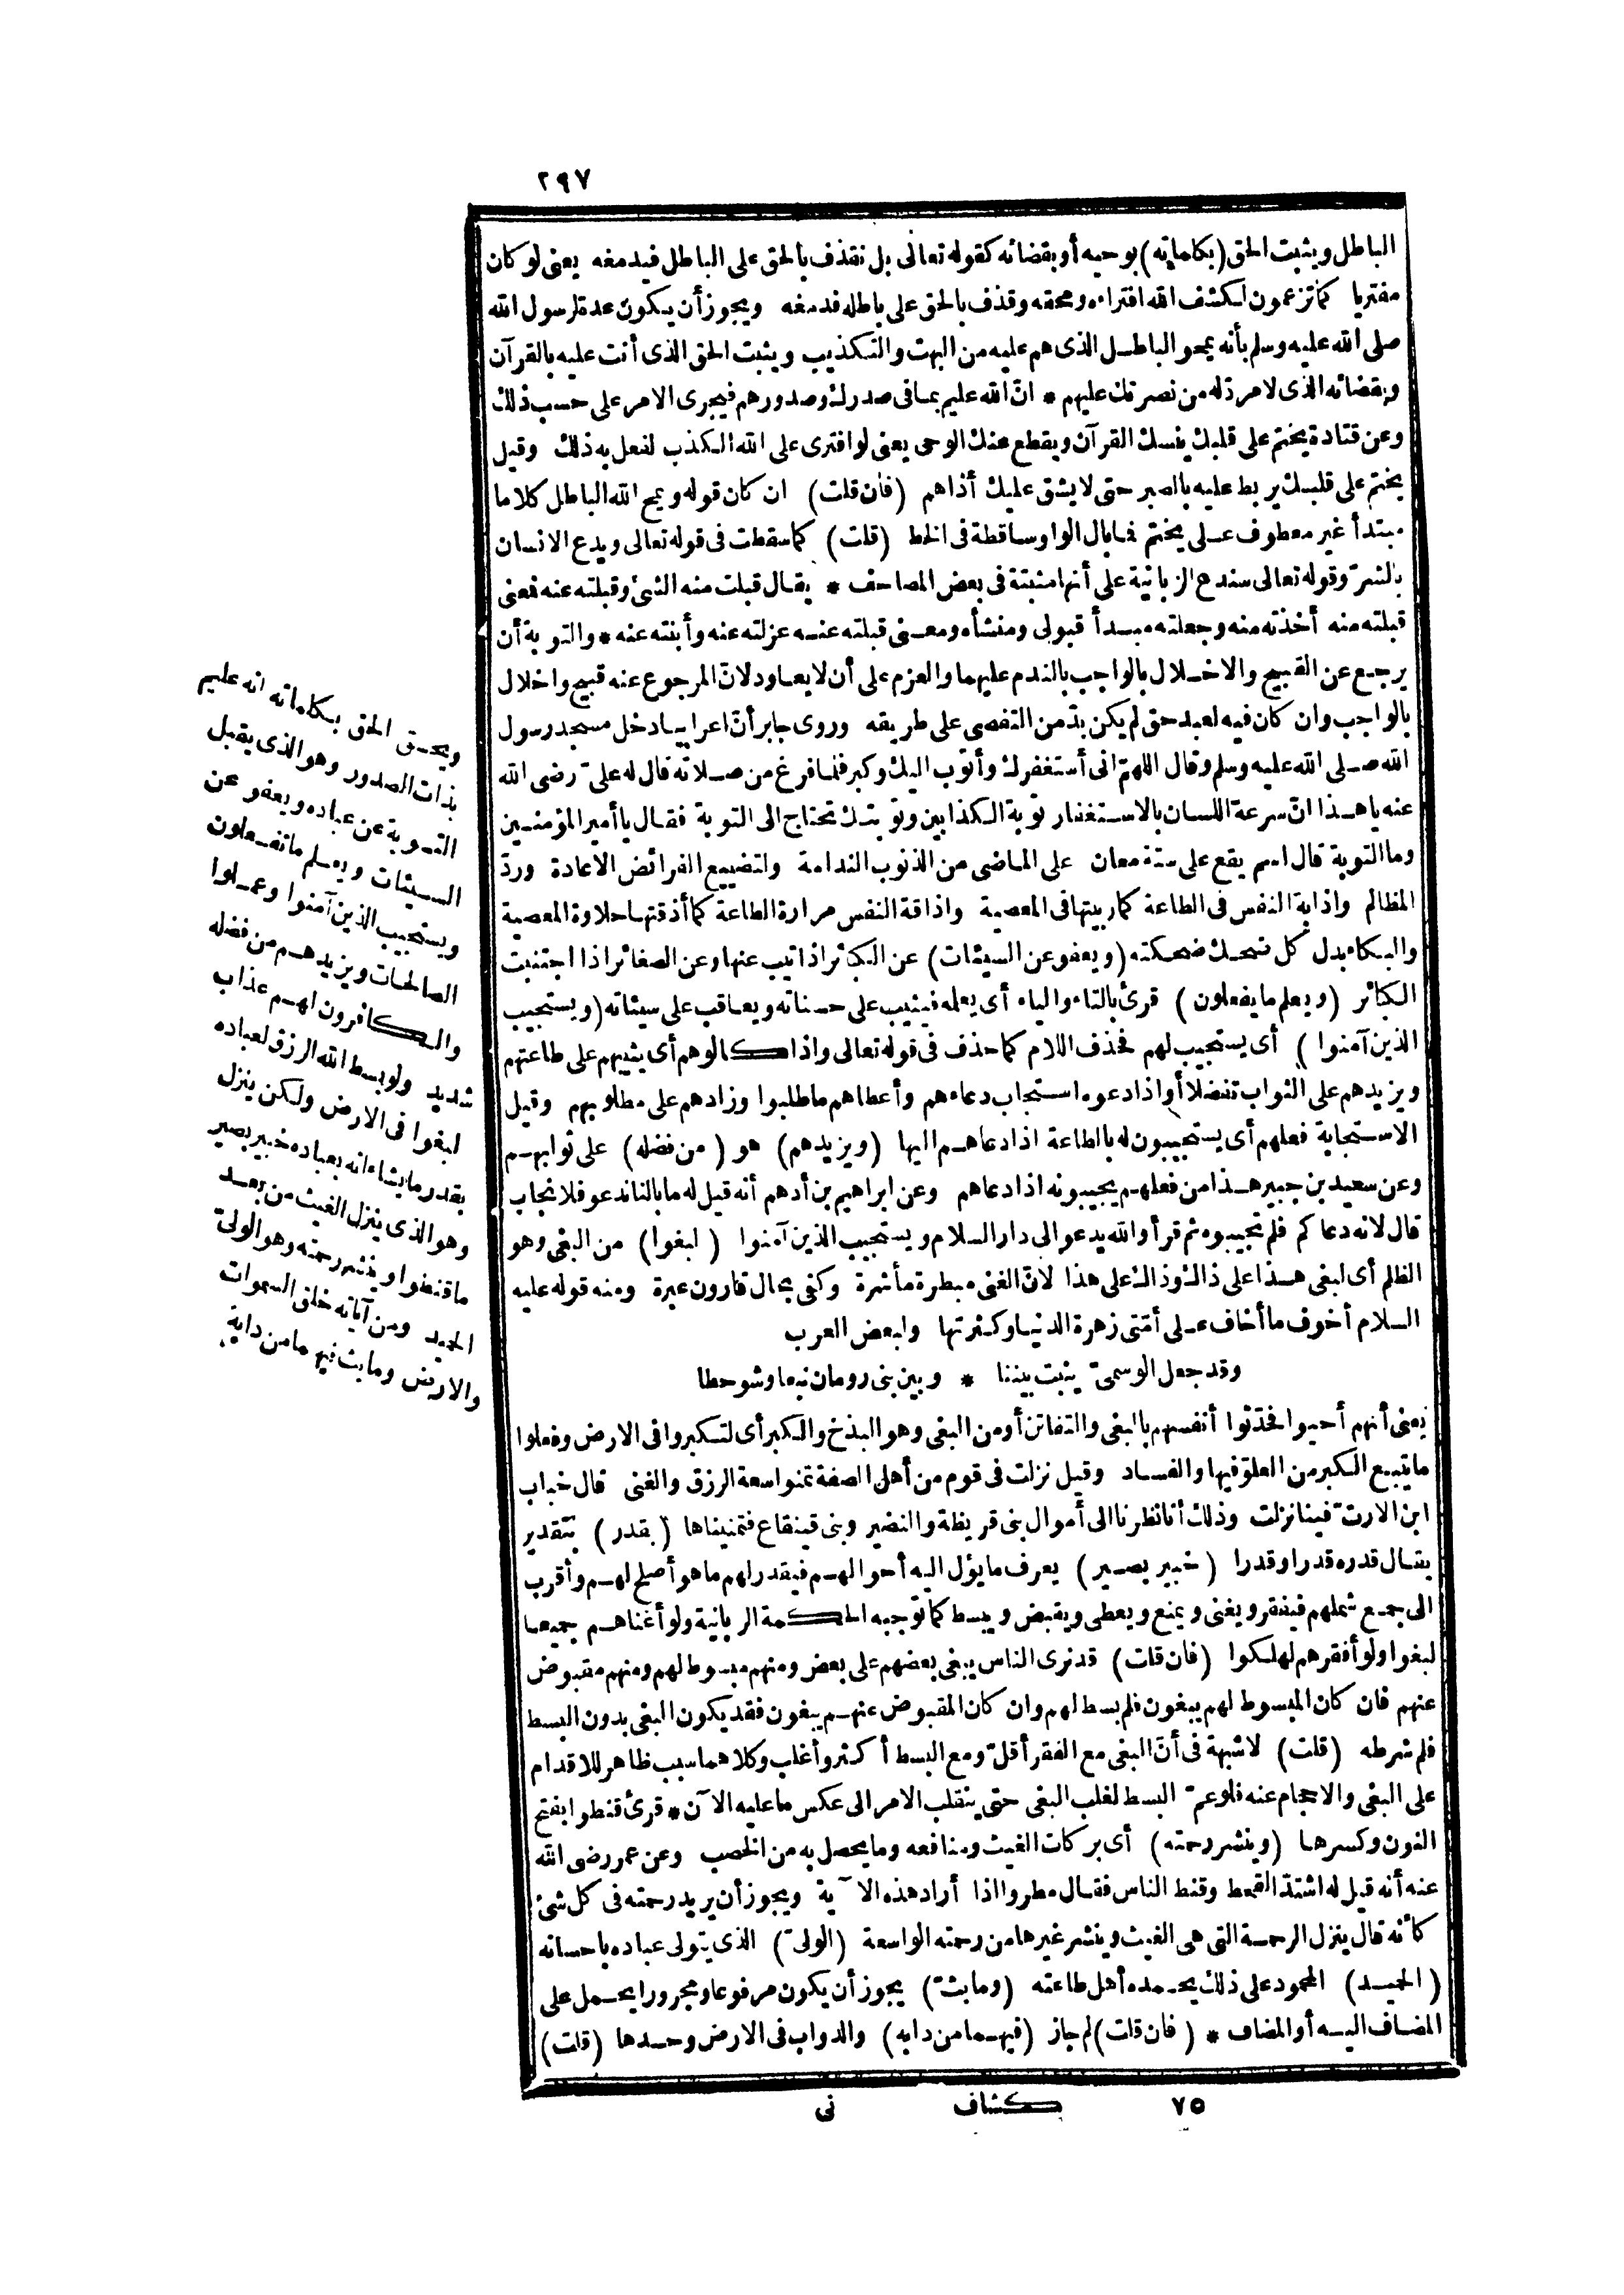 ٢٩٧
الباطل ويثبت الحق (بكلماته) بوحيه أو بقضائه كقوله تعالى بل نقذف بالحق على الباطل فيدمغه يعنى لو كان
مفتريا كما تزعمون لكشف الله افتراءه ومحقه وقذف بالحق على باطله فدمغه ويجوز أن يكون عدة لرسول الله
صلى الله عليه وسلم بأنه يمحو الباطل الذى هم عليه من البهت والتكذيب ويثبت الحق الذى أنت عليه بالقرآن
وبقضائه الذى لا مردّ له من نصرتك عليهم * انّ الله عليم بما فى صدرك وصدورهم فيجرى الامر على حسب ذلك
وعن قتادة يختم على قلبك ينسك القرآن ويقطع عنك الوحى يعنى لو افترى على الله الكذب لفعل به ذلك وقيل
يختم على قلبك يربط عليه بالصبر حتى لا يشق عليك أذاهم (فان قلت) ان كان قوله ويمح الله الباطل كلاما
مبتدأ غير معطوف على يختم فما بال الواو ساقطة فى الخط (قلت) كما سقطت فى قوله تعالى ويدع الانسان
بالشرّ وقوله تعالى سندع الزبانية على أنها مثبتة فى بعض المصاحف * يقال قبلت منه الشئ وقبلته عنه فمعنى
قبلته منه أخذته منه وجعلته مبدأ قبولى ومنشأه ومعنى قبلته عنه عزلته عنه وأبنته عنه * والتوبة أن
يرجع عن القبيح والاخلال بالواجب بالندم عليهما والعزم على أن لا يعاود لانّ المرجوع عنه قبيح واخلال
بالواجب وان كان فيه لعبد حق لم يكن بدّ من التفصى على طريقه وروى جابر أنّ اعرابيا دخل مسجد رسول
الله صلى الله عليه وسلم وقال اللهمّ انى أستغفرك وأتوب اليك وكبر فلما فرغ من صلاته قال له علىّ رضى الله
عنه يا هذا انّ سرعة اللسان بالاستغفار توبة الكذابين وتوبتك تحتاج الى التوبة فقال يا أمير المؤمنين
وما التوبة قال اسم يقع على ستة معان على الماضى من الذنوب الندامة ولتضييع الفرائض الاعادة وردّ
المظالم واذابة النفس فى الطاعة كما ربيتها فى المعصية واذاقة النفس مرارة الطاعة كما أذقتها حلاوة المعصية
والبكاء بدل كل ضحك ضحكته (ويعفو عن السيئات) عن الكبائر اذا تيب عنها وعن الصغائر اذا اجتنبت
الكبائر (ويعلم ما يفعلون) قرئ بالتاء والياء أى يعلمه فيثيب على حسناته ويعاقب على سيئاته (ويستجيب
الذين آمنوا) أى يستجيب لهم فحذف اللام كما حذف فى قوله تعالى واذا كالوهم أى يثيبهم على طاعتهم
ويزيدهم على الثواب تفضلا أو اذا دعوه استجاب دعاءهم وأعطاهم ما طلبوا وزادهم على مطلوبهم وقيل
الاستجابة فعلهم أى يستجيبون له بالطاعة اذا دعاهم اليها (ويزيدهم) هو (من فضله) على ثوابهم
وعن سعيد بن جبير هذا من فعلهم يجيبونه اذا دعاهم وعن ابراهيم بن أدهم أنه قيل له ما بالنا ندعو فلا نجاب
قال لانه دعاكم فلم تجيبوه ثم قرأ والله يدعو الى دار السلام ويستجيب الذين آمنوا (لبغوا) من البغى وهو
الظلم أى لبغى هذا على ذاك وذاك على هذا لانّ الغنى مبطرة مأشرة وكفى بحال قارون عبرة ومنه قوله عليه
السلام أخوف ما أخاف على أمّتى زهرة الدنيا وكثرتها ولبعض العرب
وقد جعل الوسمىّ ينبت بيننا * وبين بنى رومان نبعا وشوحطا
يعنى أنهم أحيوا فحدّثوا أنفسهم بالبغى والتفاتن أو من البغى وهو البذخ والكبر أى لتكبروا فى الارض وفعلوا
ما يتبع الكبر من العلوّ فيها والفساد وقيل نزلت فى قوم من أهل الصفة تمنوا سعة الرزق والغنى قال خباب
ابن الارتّ فينا نزلت وذلك أنا نظرنا الى أموال بنى قريظة والنضير وبنى قينقاع فتمنيناها (بقدر) بتقدير
يقال قدره قدرا وقدرا (خبير بصير) يعرف ما يؤل اليه أحوالهم فيقدر لهم ما هو أصلح لهم وأقرب
الى جمع شملهم فيفقر ويغنى ويمنع ويعطى ويقبض ويبسط كما توجبه الحكمة الربانية ولو أغناهم جميعا
لبغوا ولو أفقرهم لهلكوا (فان قلت) قد نرى الناس يبغى بعضهم على بعض ومنهم مبسوط لهم ومنهم مقبوض
عنهم فان كان المبسوط لهم يبغون فلم بسط لهم وان كان المقبوض عنهم يبغون فقد يكون البغى بدون البسط
فلم شرطه (قلت) لا شبهة فى أنّ البغى مع الفقر أقلّ ومع البسط أكثر وأغلب وكلاهما سبب ظاهر للاقدام
على البغى والاحجام عنه فلو عمّ البسط لغلب البغى حتى ينقلب الامر الى عكس ما عليه الآن * قرئ قنطوا بفتح
النون وكسرها (وينشر رحمته) أى بركات الغيث ومنافعه وما يحصل به من الخصب وعن عمر رضى الله
عنه أنه قيل له اشتدّ القحط وقنط الناس فقال مطروا اذا أراد هذه الآية ويجوز أن يريد رحمته فى كل شئ
كأنه قال ينزل الرحمة التى هى الغيث وينشر غيرها من رحمته الواسعة (الولىّ) الذى يتولى عباده باحسانه
(الحميد) المحمود على ذلك يحمده أهل طاعته (وما بثّ) يجوز أن يكون مرفوعا ومجرورا يحمل على
المضاف اليه أو المضاف * (فان قلت) لم جاز (فيهما من دابه) والدواب فى الارض وحدها (قلت)
ويحق الحق بكلماته انه عليم
بذات الصدور وهو الذى يقبل
التوبة عن عباده ويعفو عن
السيئات ويعلم ما تفعلون
ويستجيب الذين آمنوا وعملوا
الصالحات ويزيدهم من فضله
والكافرون لهم عذاب
شديد ولو بسط الله الرزق لعباده
لبغوا فى الارض ولكن ينزل
بقدر ما يشاء انه بعباده خبير بصير
وهو الذى ينزل الغيث من بعد
ما قنطوا وينشر رحمته وهو الولىّ
الحميد ومن آياته خلق السموات
والارض وما بث فيهما من دابة
٧٥ كشاف نى